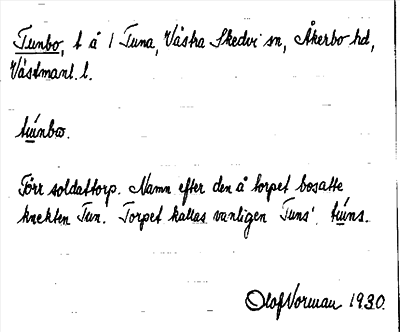 Tunbo, t å 1 Tuna, Västra Skedvi sn, Åkerbo hd,
Västmanl. l.
túnbω.
Förr soldattorp. Namn efter den å torpet bosatte
knekten Tun. Torpet kallas vanligen Tuns'. túns.
Olof Vorman 1930.